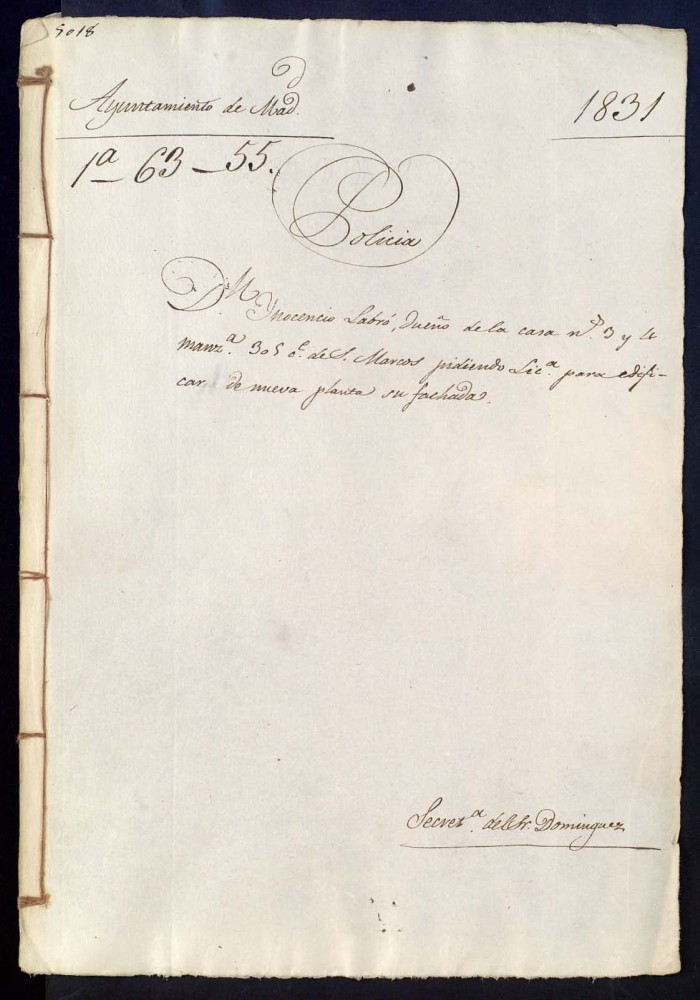 5018
Ayuntamiento de Mad.d
1831
1a 63 - 55.
Policia
D.n Ynocencio Labró, dueño de la casa n.s 3 y 4
manz.a 305 c.e de S. Marcos pidiendo Lic.a para edifi-
car de nueva planta su fachada.
Secret.a del Sr. Dominguez